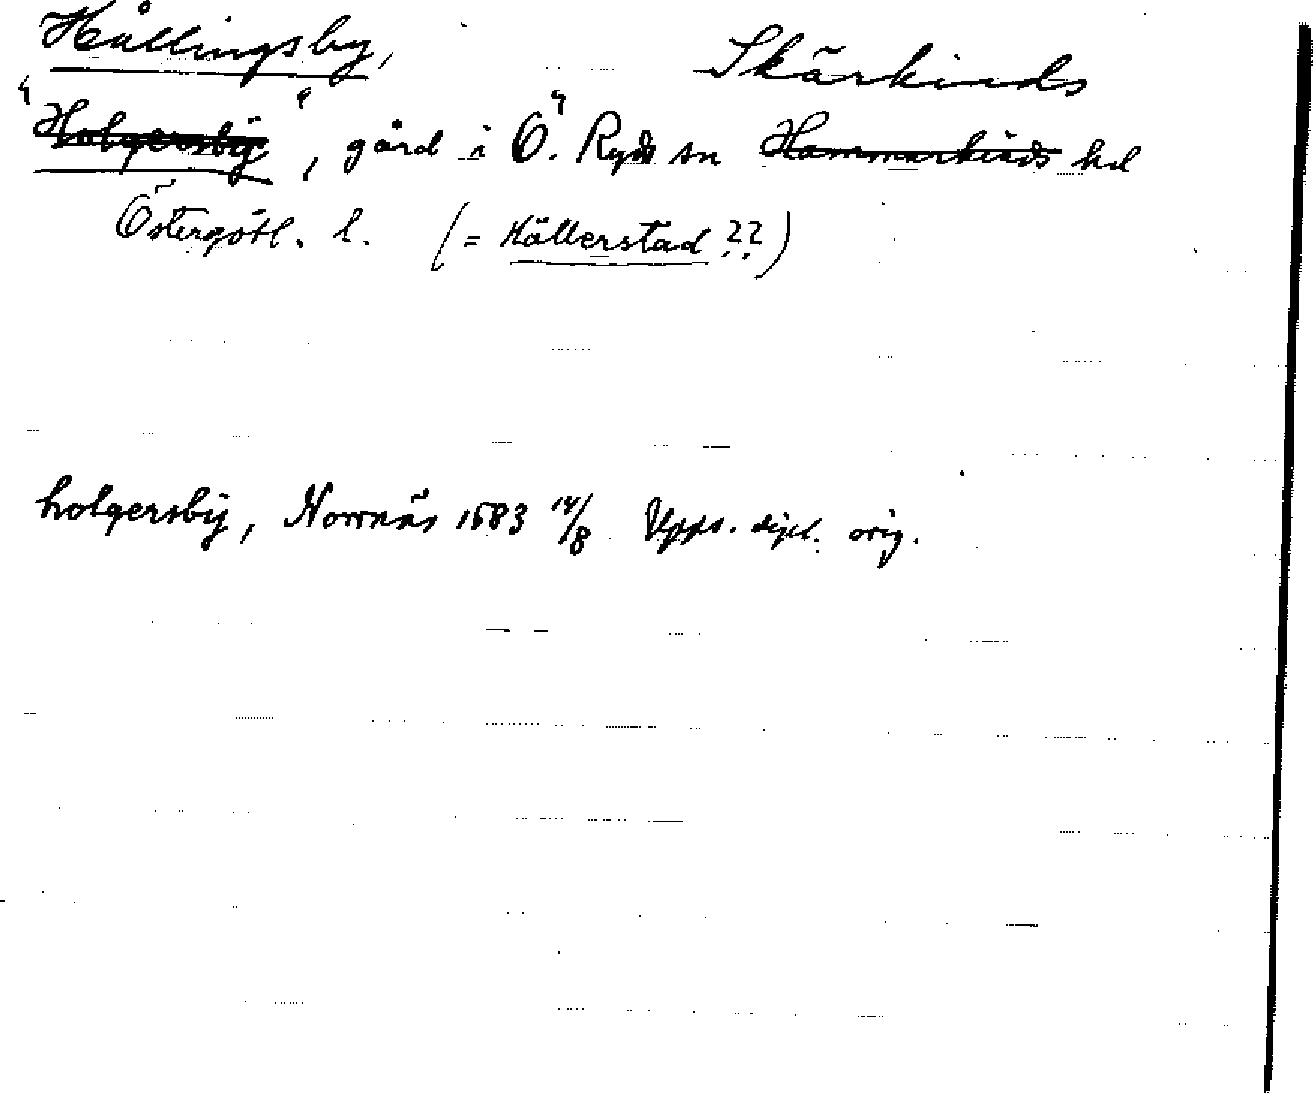 Hållingsby, Skärkinds
"Holgersbÿ", gård i Ö. Ryds sn Hammarkinds hd
Östergötl. l. (= Hällerstad ??)
holgersbÿ, Norrnäs 1583 14/8 Upps. dipl. orig.